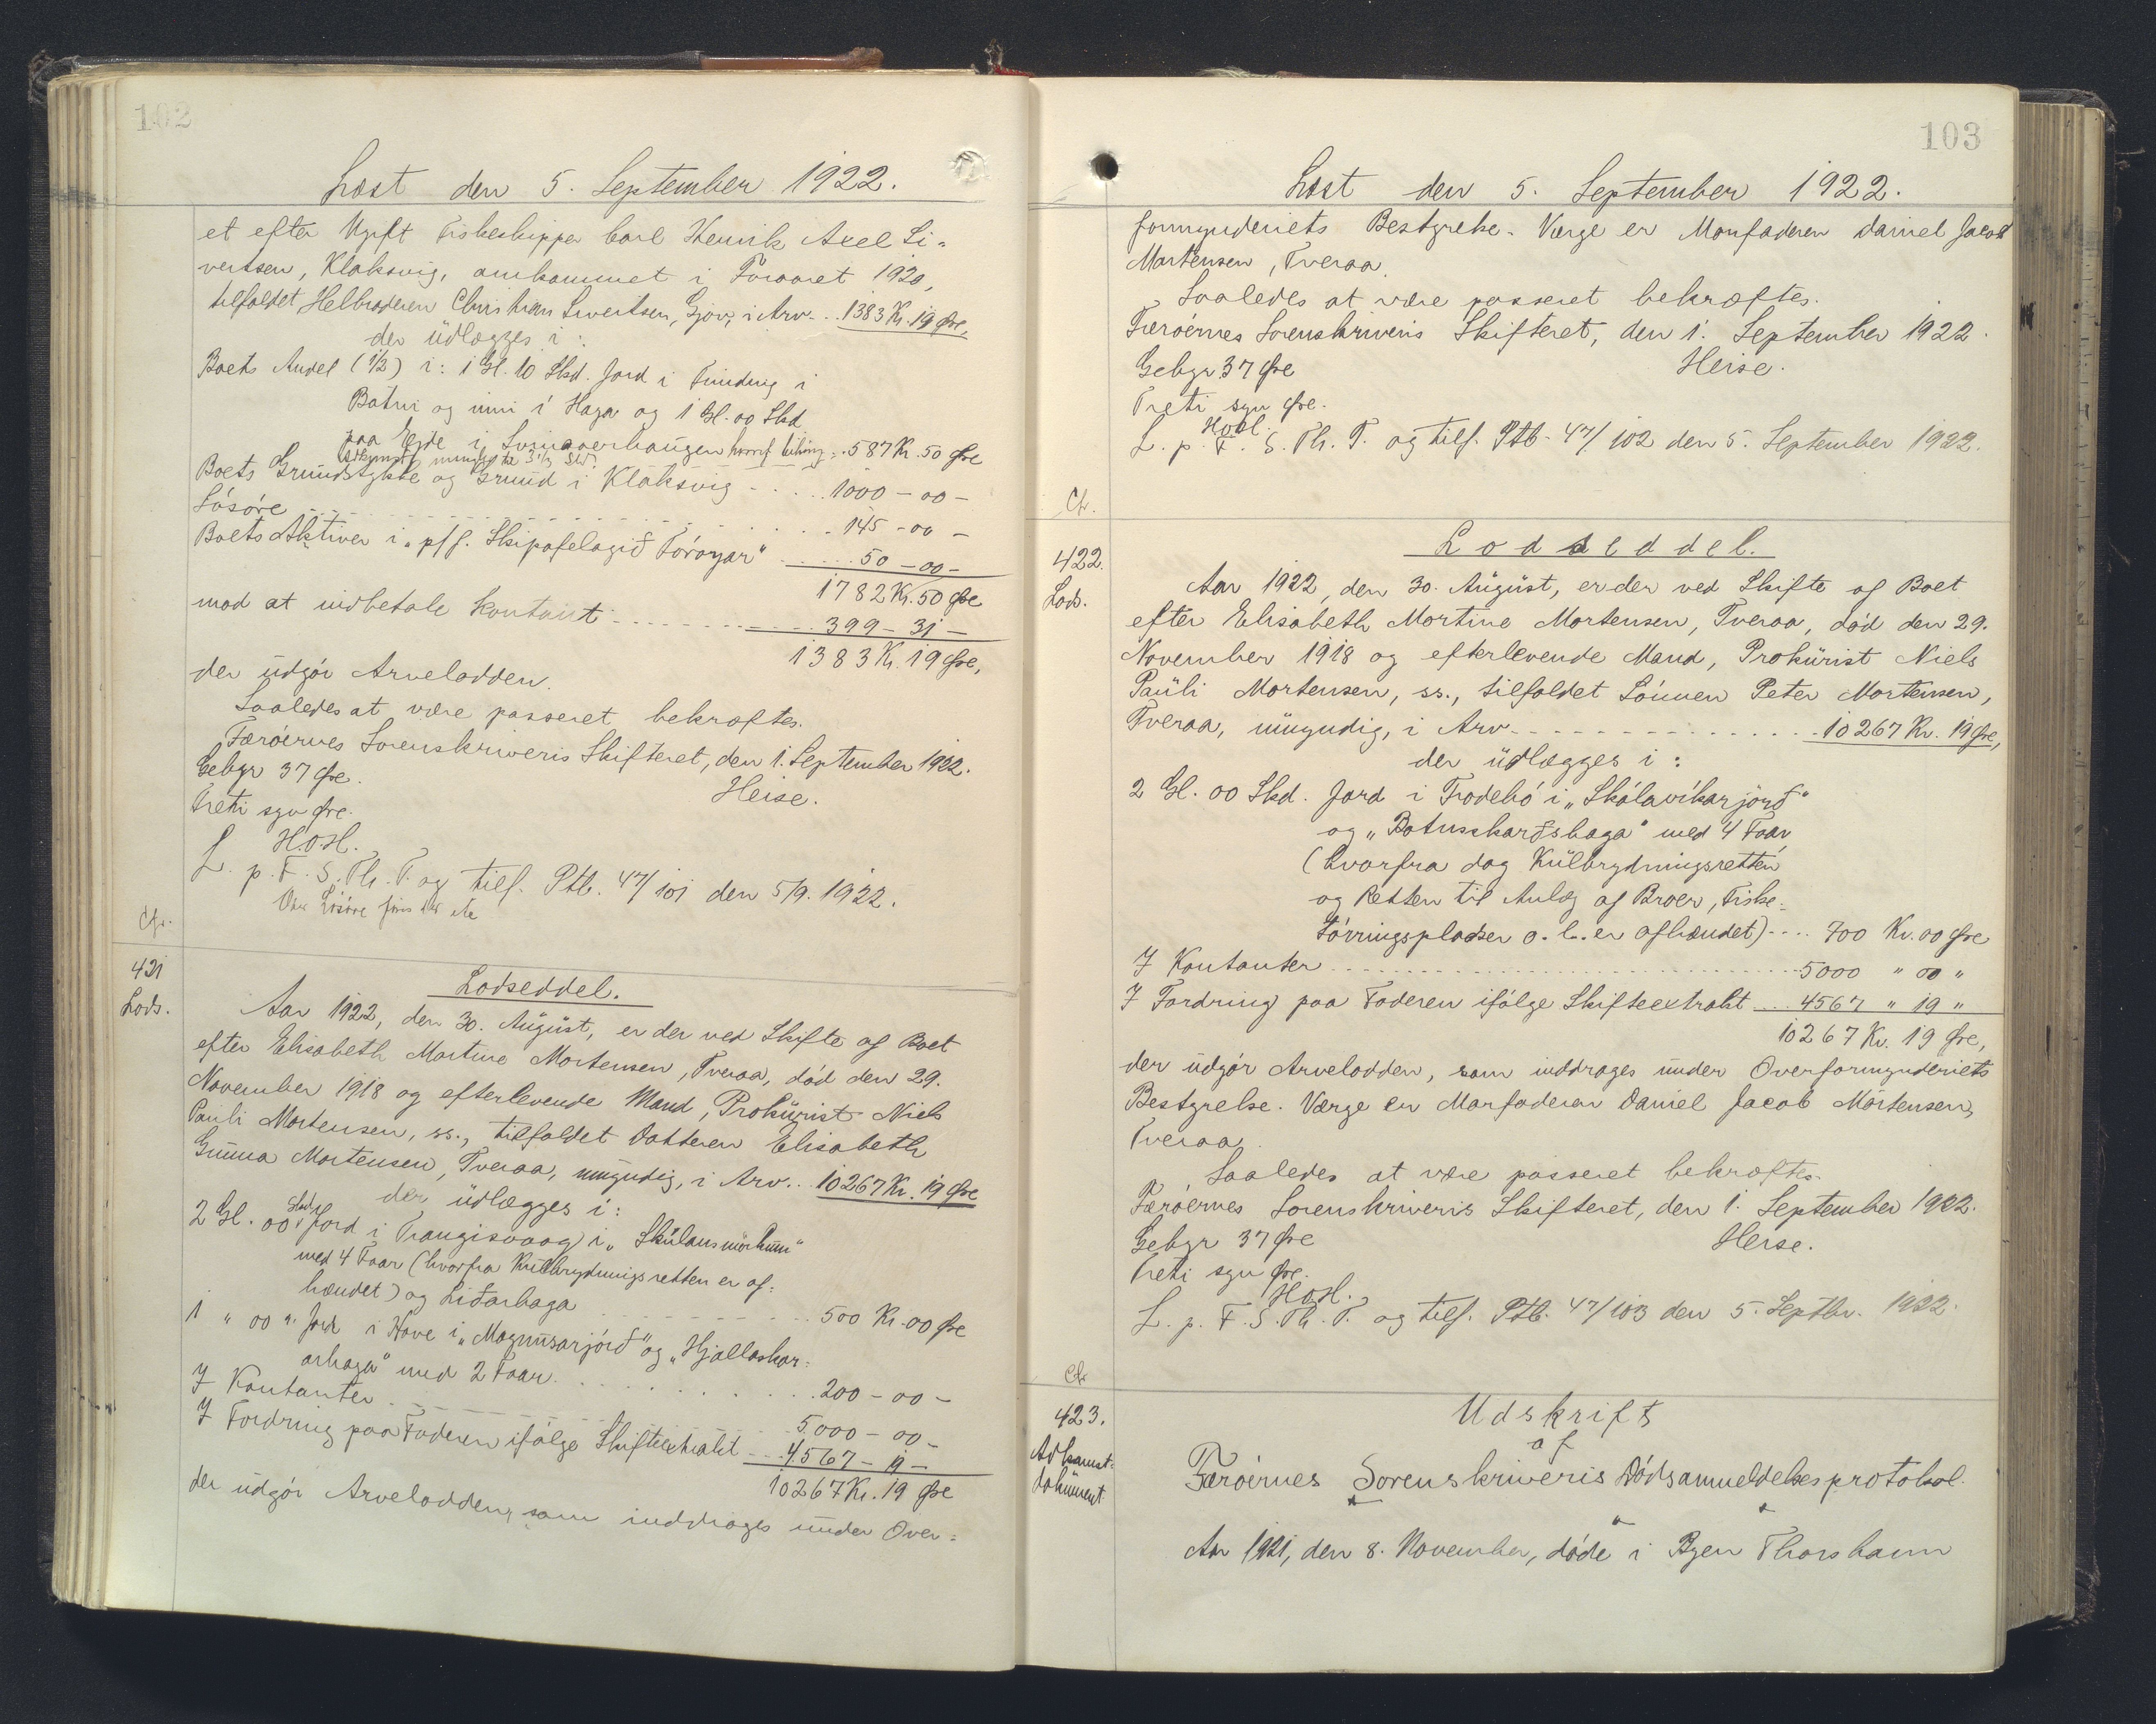 102
Læst den 5. September 1922.
et efter Ugift Fiskeskipper Carl Henrik Axel Si-
vertsen, Klaksvig, omkommet i Foraaret 1920,
tilfaldet Helbroderen Christian Sivertsen, Gjov, i Arv... 1383 Kr. 19 Øre,
der udlægges i:
Boets Andel (1/2) i: 1 Gl. 10 Skd. Jord i Funding i
Botni og inni í Haga og 1 Gl. 00 Skd
paa Ejde i 587 Kr. 50 Øre
Boets Grundstykke og Grund i Klaksvig - .... 1000 - 00 -
Løsøre .... 145 - 00 -
Boets Aktiver i "p/f. Skipafelagið Føroyar" ...... 50 - 00 -
1782 Kr. 50 Øre
mod at indbetale kontant ........ 399 - 31 -
1383 Kr. 19 Øre,
der udgør Arvelodden.
Saaledes at være passeret bekræftes.
Færøernes Sorenskriveris Skifteret, den 1. September 1922.
Gebyr 37 Øre. Heise.
Treti syv Øre.
H.O.H.
L. p. F. S. Th. T. og tilf. Ptb. 47/101 den 5/9. 1922.
Cfr.
421
Lods.
Lodseddel.
Aar 1922, den 30. August, er der ved Skifte af Boet
efter Elisabeth Martine Mortensen, Tveraa, død den 29.
November 1918 og efterlevende Mand, Prokurist Niels
Pauli Mortensen, ss., tilfaldet Datteren Elisabeth
Gunna Mortensen, Tveraa, umyndig, i Arv.. 10267 Kr. 19 Øre
der udlægges i:
2 Gl. 00 Skd. Jord i Trangisvaag i "Skúlansmørkum"
med 4 Faar (hvorfra Kulbrydningsretten er af-
hændet) og Liðarhaga ........ 500 Kr. 00 Øre
1 " 00 " Jord i Hove i "Magnusarjørð" og "Hjallaskar-
arhaga" med 2 Faar. ........ 200 - 00 -
I Kontanter ........ 5000 - 00 -
I Fordring paa Faderen ifølge Skifteextrakt ... 4567 - 19 -
10267 Kr. 19 Øre
der udgør Arvelodden, som inddrages under Over-
103
Læst den 5. September 1922.
formynderiets Bestyrelse. Værge er Morfaderen Daniel Jacob
Mortensen, Tveraa.
Saaledes at være passeret bekræftes.
Færøernes Sorenskriveris Skifteret, den 1. September 1922.
Gebyr 37 Øre Heise.
Treti syv Øre.
HOH.
L. p. F. S. Th. T. og tilf. Ptb. 47/102 den 5. September 1922.
Cfr.
422.
Lods.
Lodseddel.
Aar 1922, den 30. August, er der ved Skifte af Boet
efter Elisabeth Martine Mortensen, Tveraa, død den 29.
November 1918 og efterlevende Mand, Prokurist Niels
Pauli Mortensen, ss., tilfaldet Sønnen Peter Mortensen,
Tveraa, umyndig, i Arv ........ 10267 Kr. 19 Øre,
der udlægges i:
2 Gl. 00 Skd. Jord i Frodebø i "Skálavíkarjørð"
og "Botnsskarðshaga" med 4 Faar
(hvorfra dog Kulbrydningsretten
og Retten til Anlæg af Broer, Fiske-
tørringspladser o. l. er afhændet) .... 700 Kr. 00 Øre
I Kontanter ........ 5000 " 00 "
I Fordring paa Faderen ifølge Skifteextrakt .... 4567 " 19 "
10267 Kr. 19 Øre,
der udgør Arvelodden, som inddrages under Overformynderiets
Bestyrelse. Værge er Morfaderen Daniel Jacob Mortensen,
Tveraa.
Saaledes at være passeret bekræftes.
Færøernes Sorenskriveris Skifteret, den 1. September 1922.
Gebyr 37 Øre Heise.
Treti syv Øre.
HOH.
L. p. F. S. Th. T. og tilf. Ptb. 47/103 den 5. Septbr. 1922.
Cfr
423.
Adkomst-
dokument
Udskrift
af
Færøernes Sorenskriveris Dødsanmeldelsesprotokol.
Aar 1921, den 8. November, døde i Byen Thorshavn